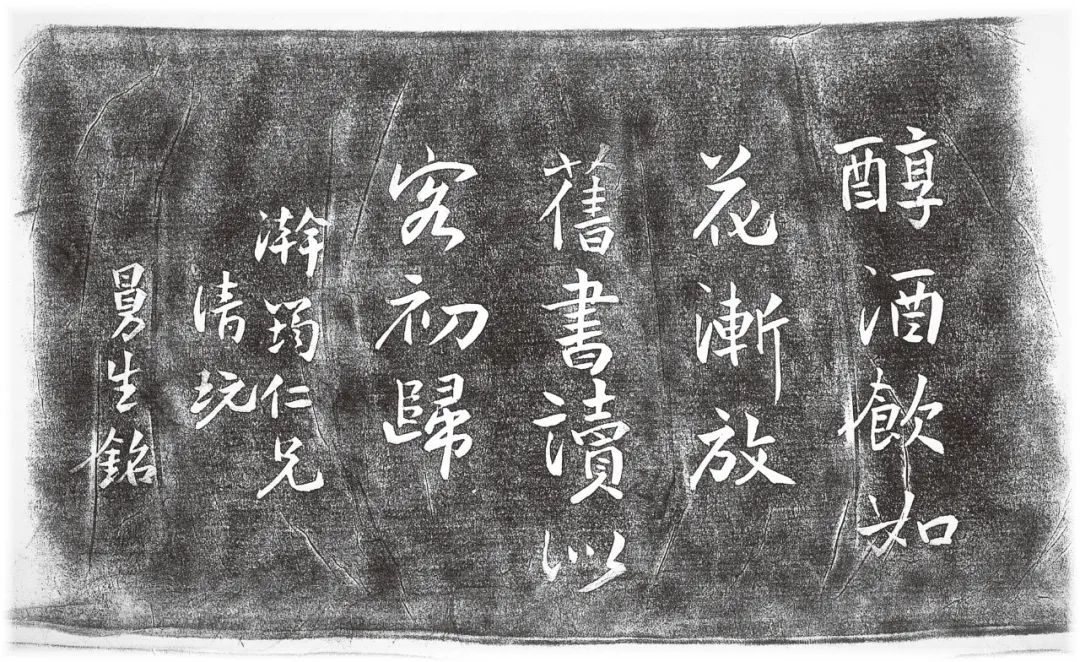 醇酒飲如
花漸放
舊書讀似
客初歸
瀚仁兄
清玩
曼生銘